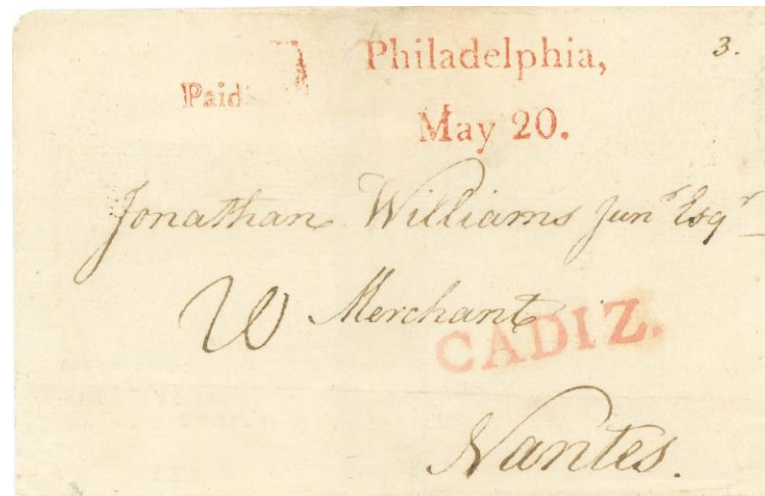 Philadelphia, 3.
Paid
May 20.
Jonathan Williams Junr Esqr
Merchant
CADIZ.
Nantes.